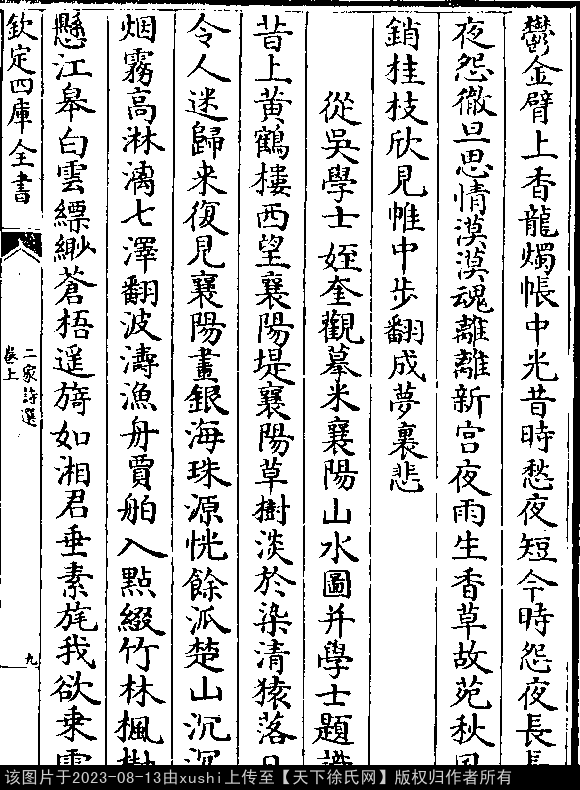 鬱金臂上香龍燭帳中光昔時愁夜短今時怨夜長長
夜怨徹旦思情漠漠魂離離新宫夜雨生香草故苑秋風
銷桂枝欣見帷中步翻成夢裏悲
從吳學士姪奎觀摹米襄陽山水圖并學士題識
昔上黄鶴樓西望襄陽堤襄陽草樹淡於染清猿落日
令人迷歸来復見襄陽畫銀海珠源恍餘派楚山沉沉
烟霧高淋漓七澤翻波濤漁舟賈舶入點綴竹林楓樹
懸江皋白雲縹緲蒼梧遥旖如湘君垂素旄我欲乗雲
欽定四庫全書
二家詩選
卷上
九
该图片于2023-08-13由xushi上传至【天下徐氏网】版权归作者所有